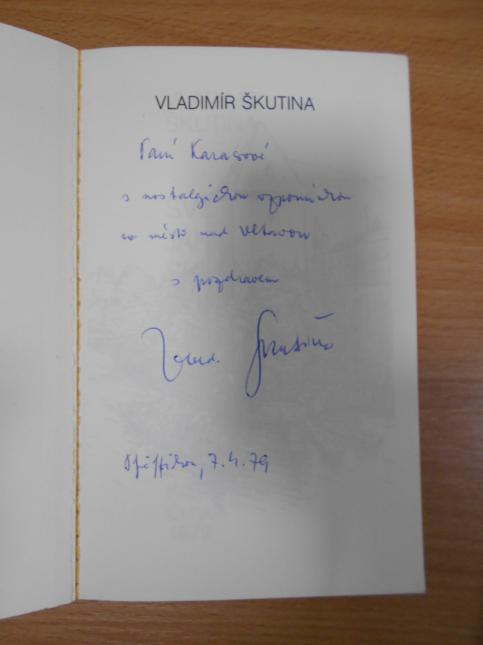 VLADIMÍR ŠKUTINA
Paní Karasové
s nostalgickou vzpomínkou
na město nad Vltavou
s pozdravem
Vlad. Škutina
Pfäffikon, 7.4.79